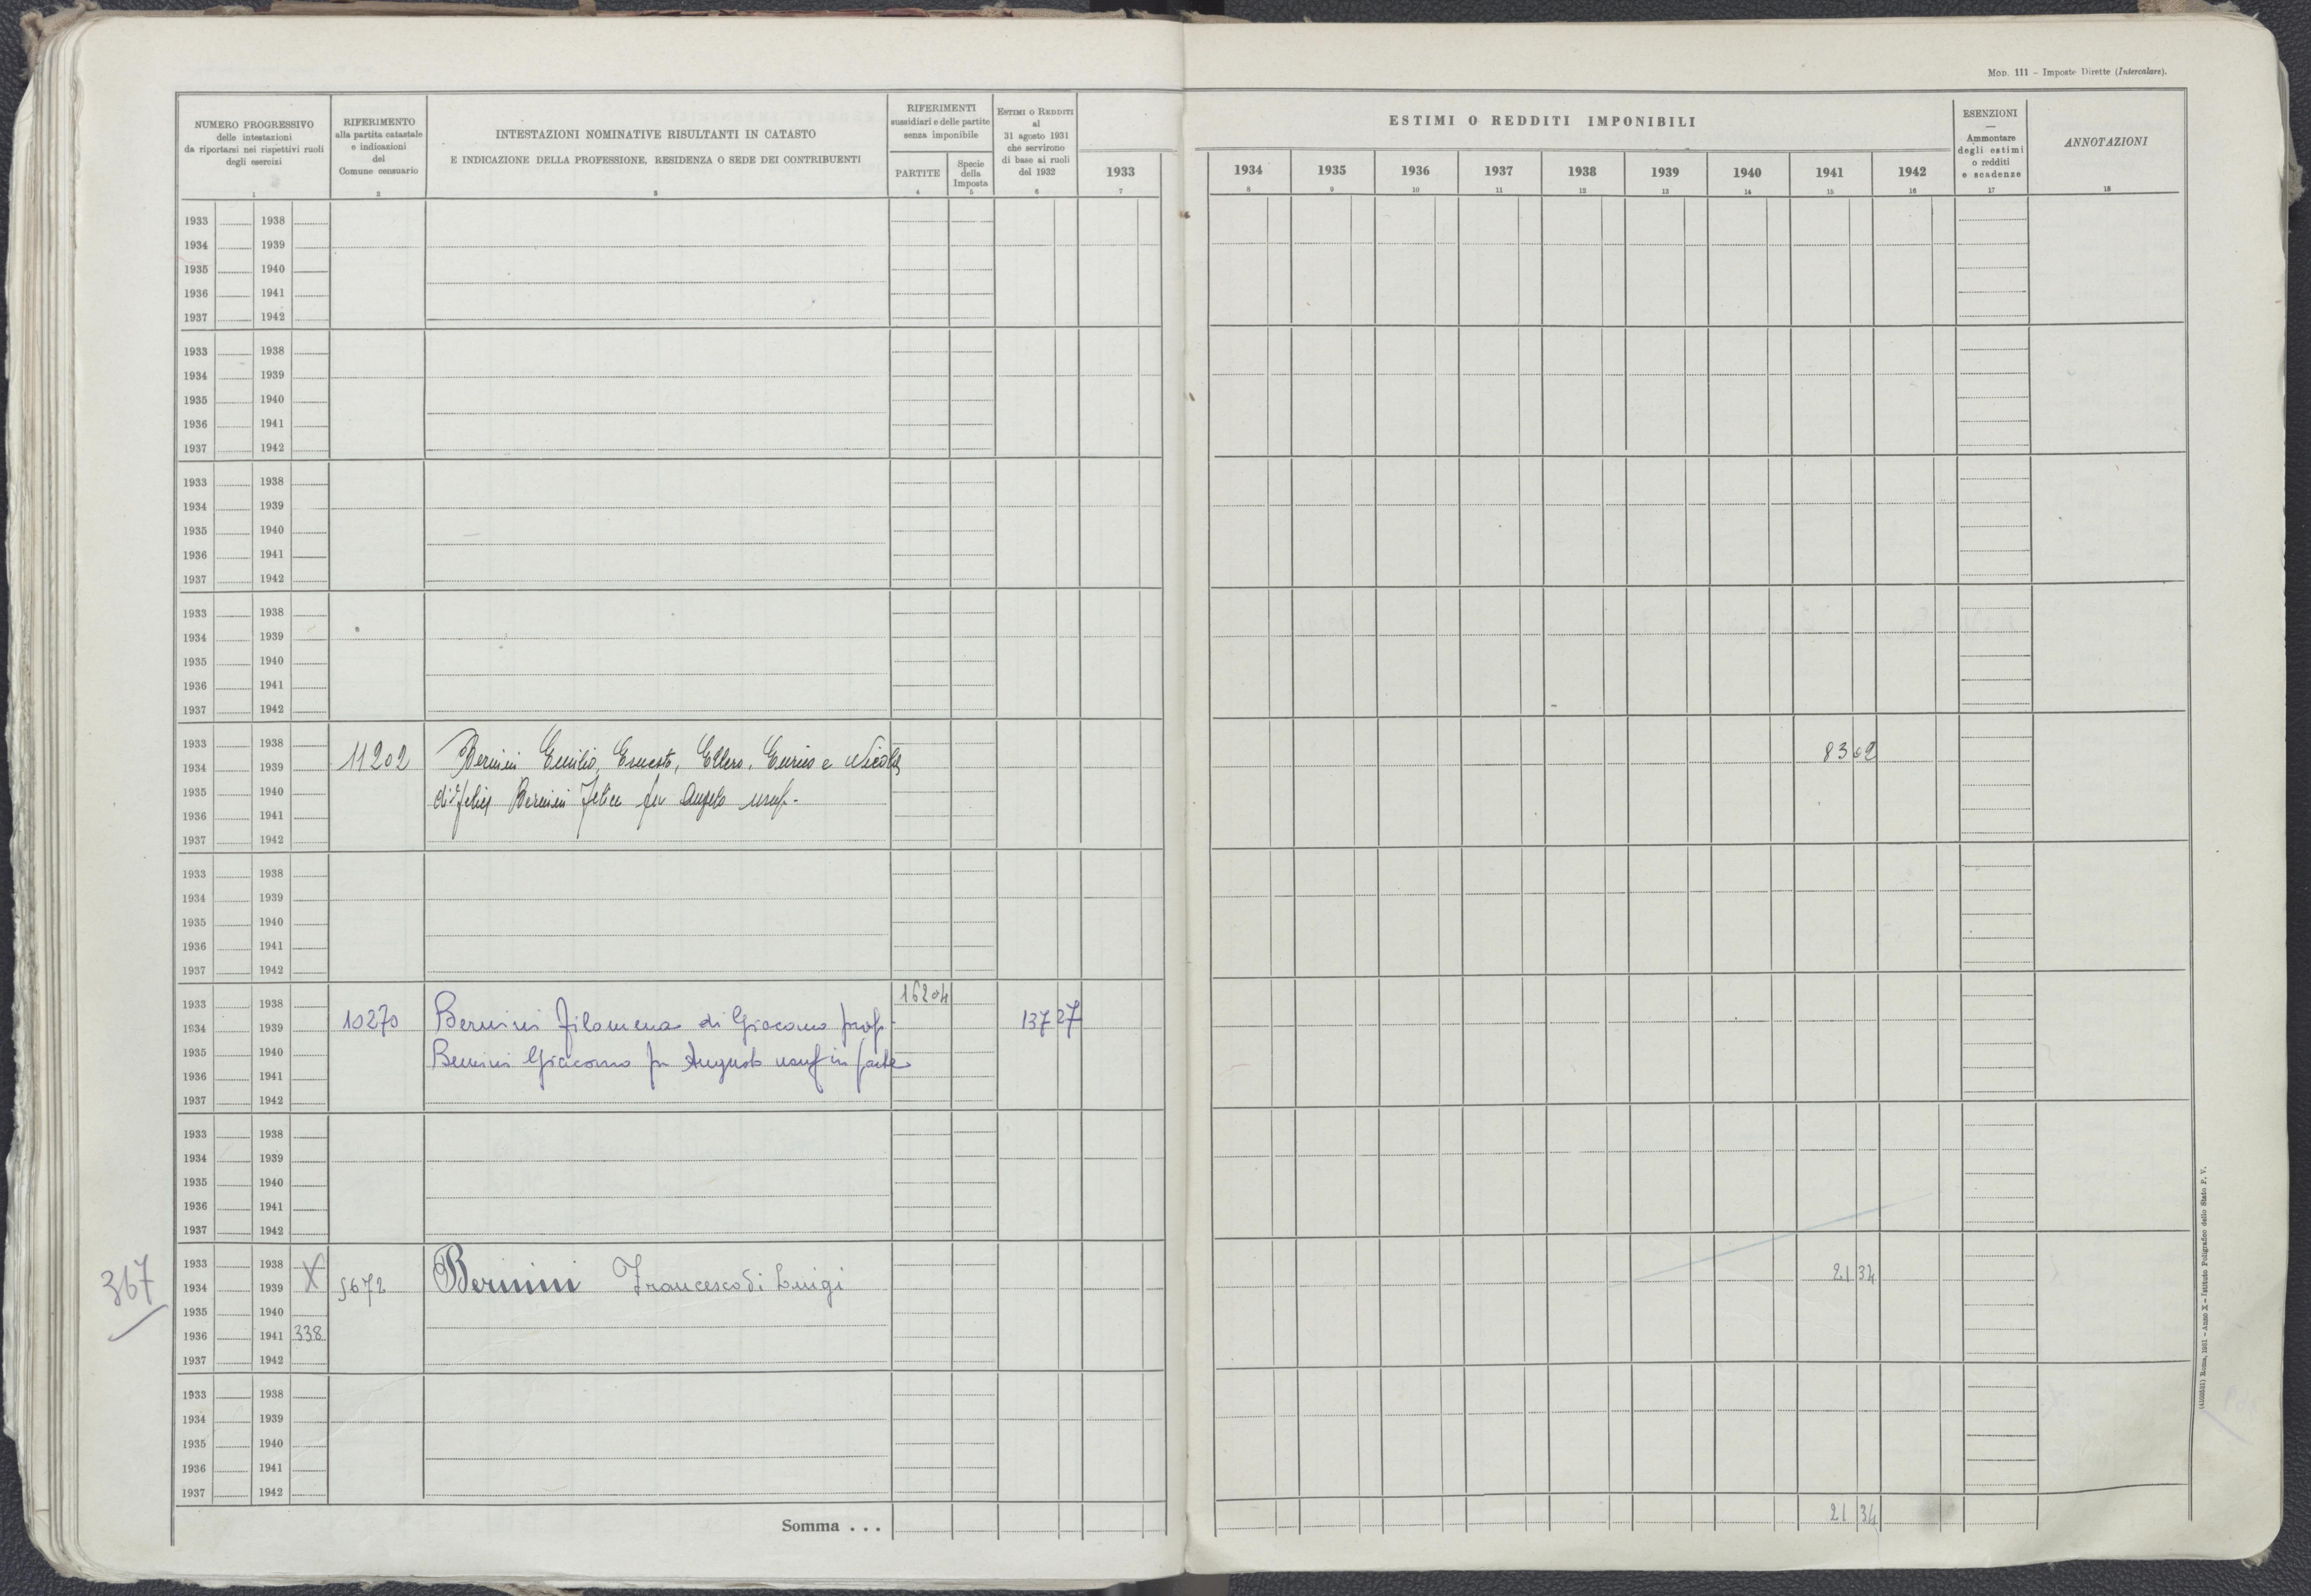 MOD. 111 – Imposte Dirette (Intercalare).
NUMERO PROGRESSIVO
delle intestazioni
da riportarsi nei rispettivi ruoli
degli esercizi
1
RIFERIMENTO
alla partita catastale
e indicazioni
del
Comune censuario
2
INTESTAZIONI NOMINATIVE RISULTANTI IN CATASTO
E INDICAZIONE DELLA PROFESSIONE, RESIDENZA O SEDE DEI CONTRIBUENTI
3
RIFERIMENTI
sussidiari e delle partite
senza imponibile
PARTITE
4
Specie
della
Imposta
5
ESTIMI O REDDITI
al
31 agosto 1931
che servirono
di base ai ruoli
del 1932
6
1933
7
ESTIMI O REDDITI IMPONIBILI
1934 1935 1936 1937 1938 1939 1940 1941 1942
8 9 10 11 12 13 14 15 16
ESENZIONI
—
Ammontare
degli estimi
o redditi
e scadenze
17
ANNOTAZIONI
18
1933 1938
1934 1939
1935 1940
1936 1941
1937 1942
1933 1938
1934 1939
1935 1940
1936 1941
1937 1942
1933 1938
1934 1939
1935 1940
1936 1941
1937 1942
1933 1938
1934 1939
1935 1940
1936 1941
1937 1942
1933 1938
1934 1939 11202 Bernini Emilio, Ernesto, Ellero, Enrico e 83 62
1935 1940 Bernini Felice fu Angelo usuf.
1936 1941
1937 1942
1933 1938
1934 1939
1935 1940
1936 1941
1937 1942
1933 1938 16204
1934 1939 10270 Bernini Filomena di Giacomo prop. 137 27
1935 1940 Bernini Giacomo fu Augusto usuf in parte
1936 1941
1937 1942
1933 1938
1934 1939
1935 1940
1936 1941
1937 1942
1933 1938 X
367 1934 1939 5672 Bernini Francesco di Luigi 21 34
1935 1940
1936 1941 338
1937 1942
1933 1938
1934 1939
1935 1940
1936 1941
1937 1942
Somma . . . 21 34
Roma, 1931 – Anno X – Istituto Poligrafico dello Stato P. V.